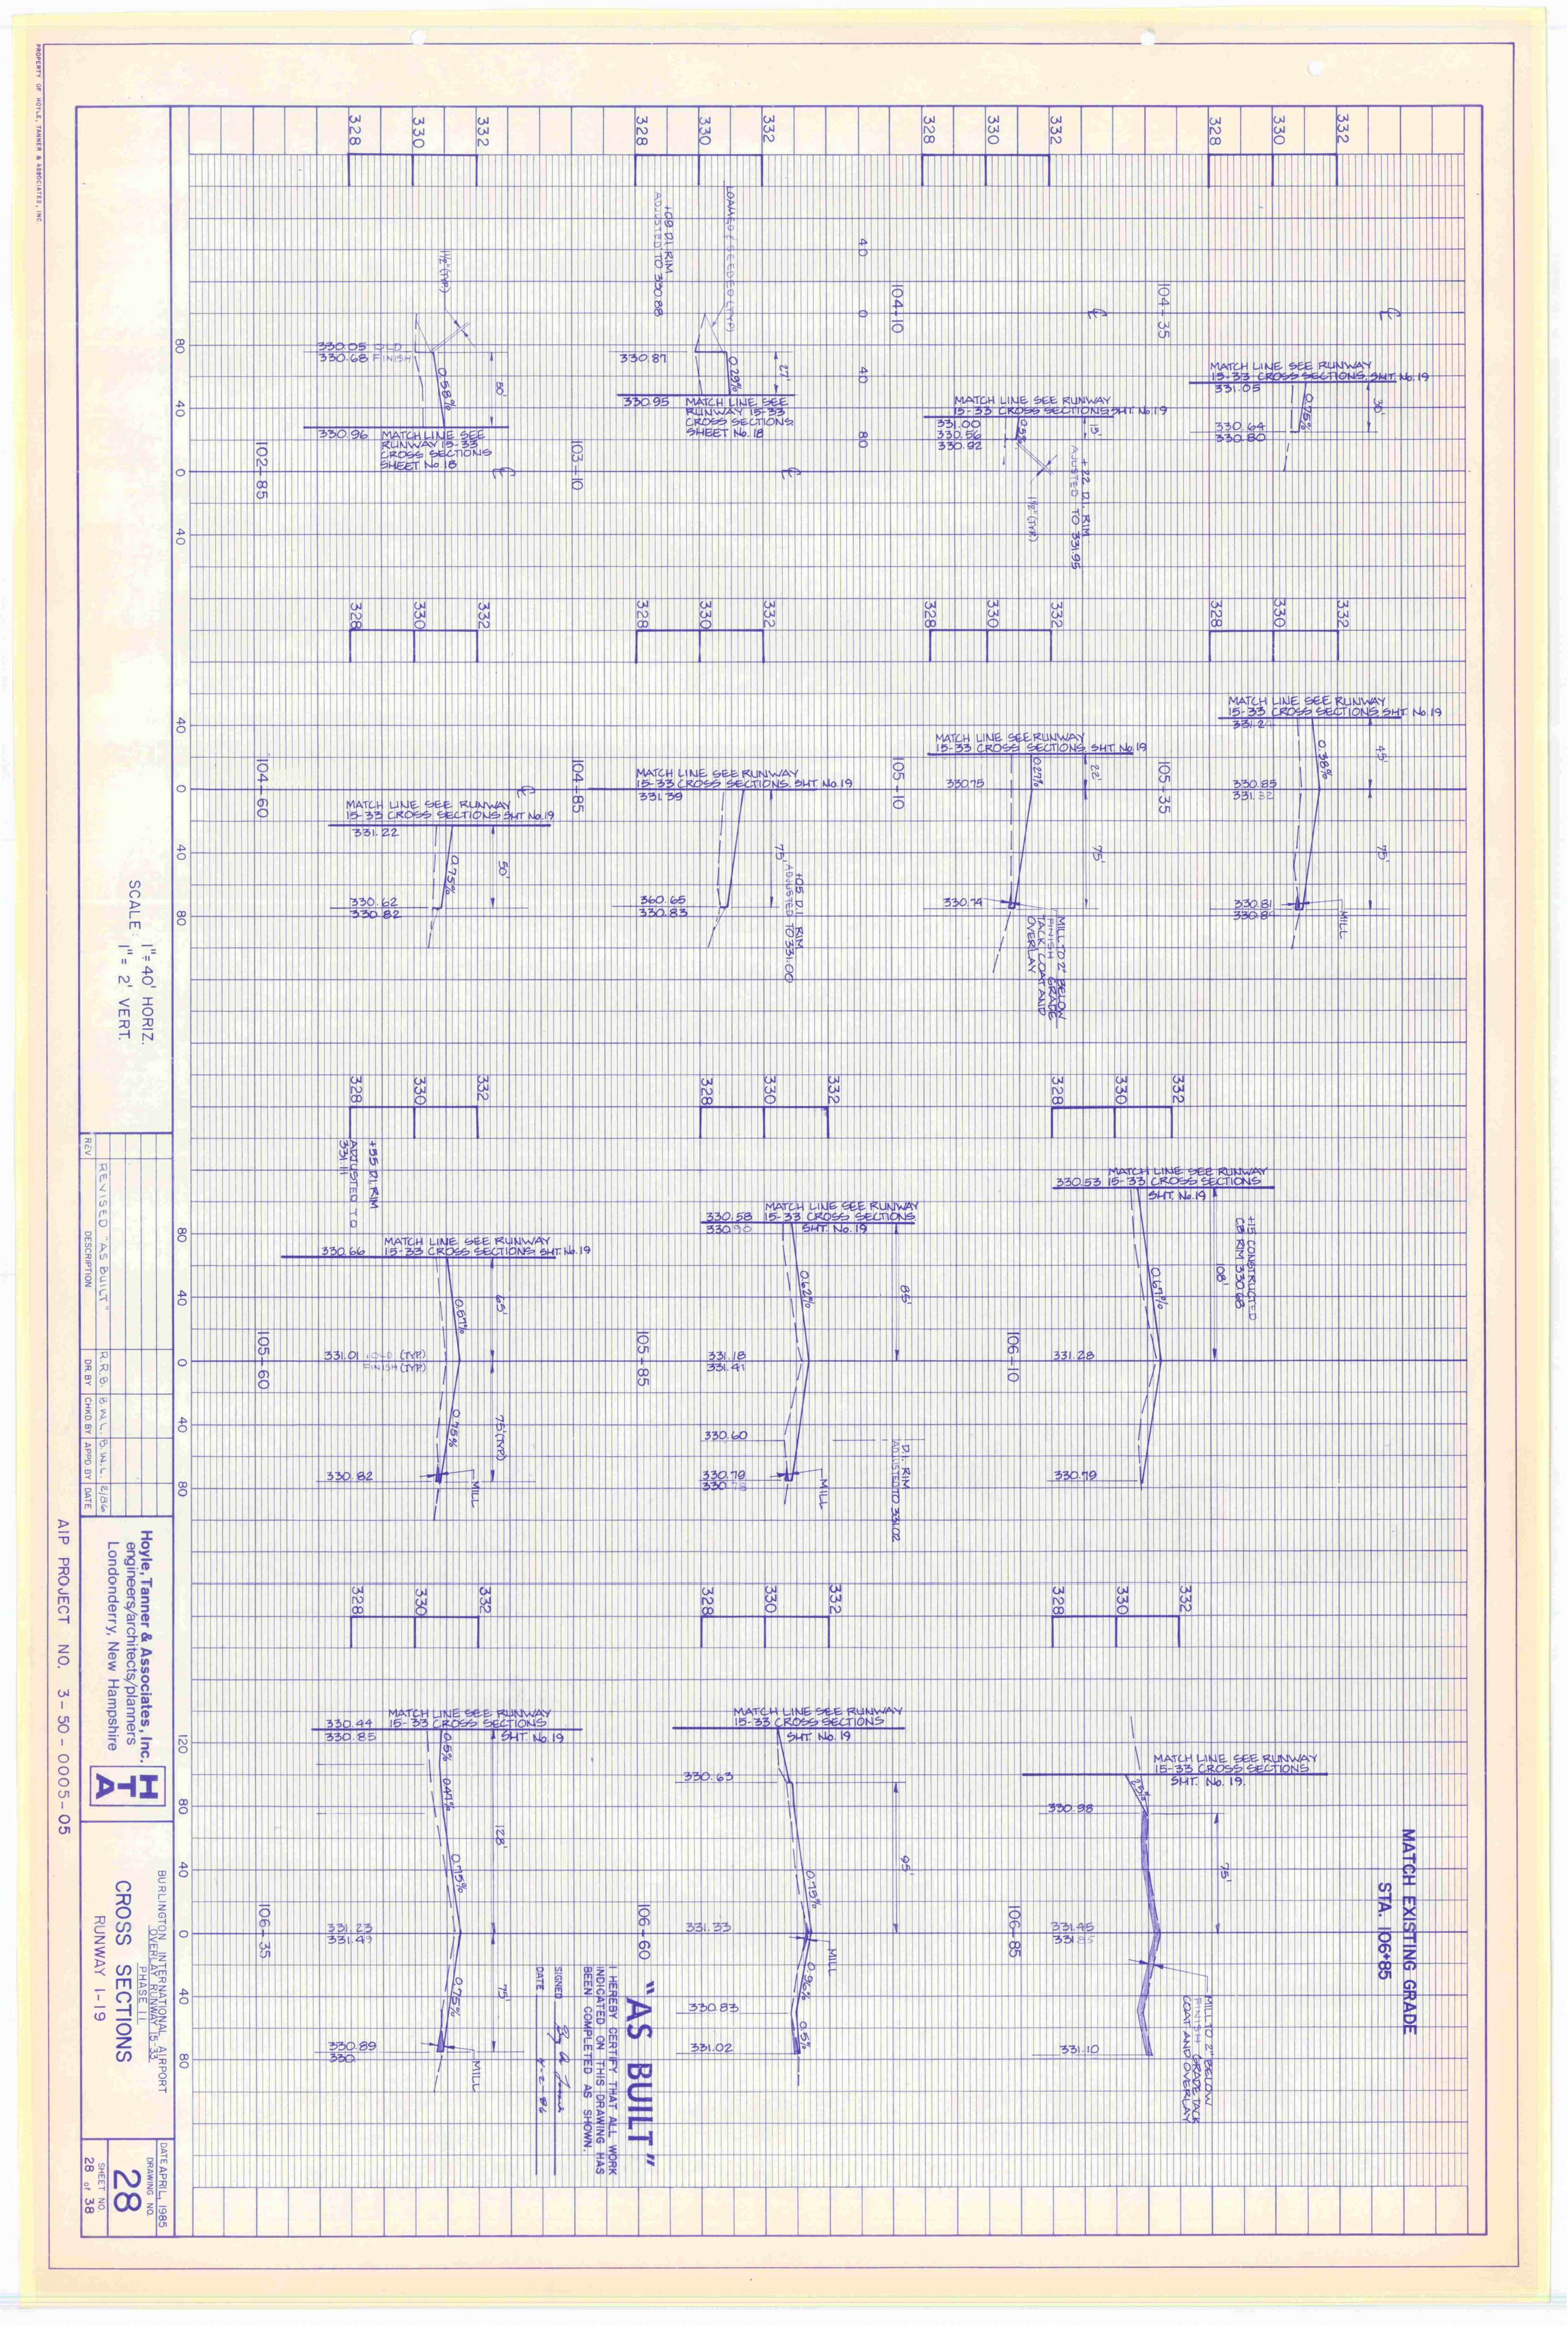 PROPERTY OF HOYLE, TANNER & ASSOCIATES, INC.
328
330
332
328
330
332
328
330
332
328
330
332
1½" (TYP.)
330.05 OLD
330.68 FINISH
0.58%
50'
330.96 MATCH LINE SEE
RUNWAY 15-33
CROSS SECTIONS
SHEET No. 18
102-85
80
40
0
40
+09 D.I. RIM
ADJUSTED TO 330.88
LOAMED & SEEDED (TYP.)
330.87
0.29%
27'
330.95 MATCH LINE SEE
RUNWAY 15-33
CROSS SECTIONS
SHEET No. 18
103-10
40
0
40
80
104-10
MATCH LINE SEE RUNWAY
15-33 CROSS SECTIONS SHT No. 19
331.00
330.56
330.82
0.5%
15'
1½" (TYP.)
+22 D.I. RIM
AJUSTED TO 331.95
104-35
MATCH LINE SEE RUNWAY
15-33 CROSS SECTIONS SHT No. 19
331.05
0.75%
30'
330.64
330.80
328
330
332
328
330
332
328
330
332
328
330
332
40
0
40
80
104-60
MATCH LINE SEE RUNWAY
15-33 CROSS SECTIONS SHT No. 19
331.22
0.75%
50'
330.62
330.82
104-85
MATCH LINE SEE RUNWAY
15-33 CROSS SECTIONS SHT No. 19
331.39
75'
360.65
330.83
+05 D.I. RIM
ADJUSTED TO 331.00
105-10
MATCH LINE SEE RUNWAY
15-33 CROSS SECTIONS SHT No. 19
0.27%
22'
330.75
75'
330.74
MILL TO 2" BELOW
FINISH GRADE
TACK COAT AND
OVERLAY
105-35
MATCH LINE SEE RUNWAY
15-33 CROSS SECTIONS SHT No. 19
0.38%
45'
330.85
75'
330.81
MILL
328
330
332
328
330
332
328
330
332
+55 D.I. RIM
ADJUSTED TO
331.11
330.66
MATCH LINE SEE RUNWAY
15-33 CROSS SECTIONS SHT. No. 19
0.57%
65'
331.01 OLD (TYP.)
FINISH (TYP.)
0.75%
75' (TYP.)
330.82
MILL
105-60
80
40
0
40
80
MATCH LINE SEE RUNWAY
330.58 15-33 CROSS SECTIONS
SHT. No. 19
0.62%
85'
331.18
331.41
330.60
330.79
MILL
D.I. RIM
ADJUSTED TO 331.02
105-85
MATCH LINE SEE RUNWAY
330.53 15-33 CROSS SECTIONS
SHT. No. 19
+15 CONSTRUCTED
CB RIM 330.68
108'
0.67%
331.28
330.79
106-10
328
330
332
328
330
332
328
330
332
MATCH LINE SEE RUNWAY
330.44 15-33 CROSS SECTIONS
330.85 SHT. No. 19
0.5%
0.47%
0.75%
128'
331.23
331.49
0.75%
75'
330.89
330
MILL
106-35
120
80
40
0
40
80
MATCH LINE SEE RUNWAY
15-33 CROSS SECTIONS
SHT. No. 19
330.63
95'
0.75%
331.33
MILL
0.96%
330.83
0.5%
331.02
106-60
MATCH LINE SEE RUNWAY
15-33 CROSS SECTIONS
SHT. No. 19.
330.98
75'
331.45
331.10
MILL TO 2" BELOW
FINISH GRADE TACK
COAT AND OVERLAY
106-85
MATCH EXISTING GRADE
STA. 106+85
"AS BUILT"
I HEREBY CERTIFY THAT ALL WORK
INDICATED ON THIS DRAWING HAS
BEEN COMPLETED AS SHOWN.
SIGNED
DATE 4-2-86
SCALE: 1" = 40' HORIZ.
1" = 2' VERT.
REVISED "AS BUILT" R.R.B. B.W.L. B.W.L. 2/86
REV DESCRIPTION DR. BY CHKD BY APPD. BY DATE
Hoyle, Tanner & Associates, Inc.
engineers/architects/planners
Londonderry, New Hampshire
HTA
BURLINGTON INTERNATIONAL AIRPORT
OVERLAY RUNWAY 15-33
PHASE II
CROSS SECTIONS
RUNWAY 1-19
DATE APRIL, 1985
DRAWING NO.
28
SHEET NO.
28 of 38
AIP PROJECT NO. 3-50-0005-05